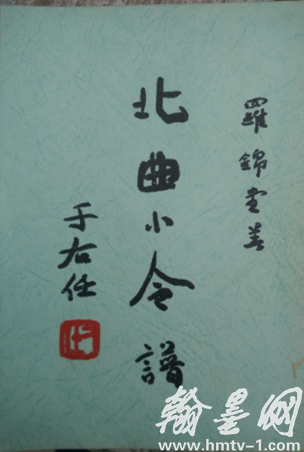 羅錦堂著
北曲小令譜
于右任
翰墨网
www.hmtv-1.com